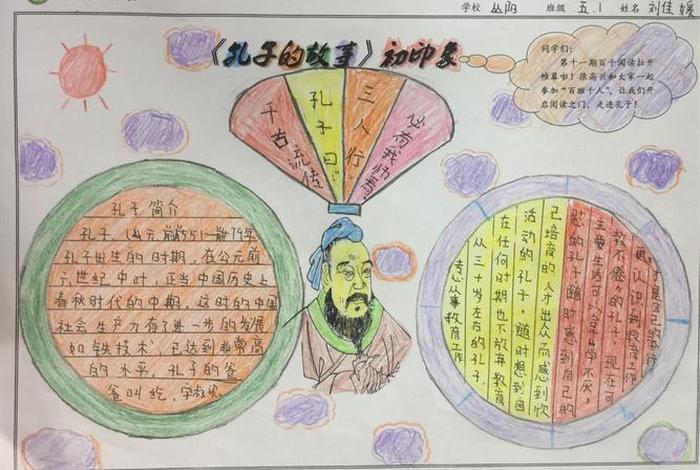 学校 班级 五.1 姓名 刘佳媛
《孔子的故事》初印象
同学们：
第十一期百千阅读拉开
帷幕啦！很高兴和大家一起
参加“百班千人”，让我们开
启阅读之门，走进孔子！
千古流传
孔子曰
三人行
必有我师焉
孔子简介
孔子，(公元前551—前479年
孔子出生的时期，在公元前
六世纪中时，正当中国历史上
春秋时代的中期，这时的中国
社会生产力有了进一步的发展
如铁技术，已达到非常高
的水平，孔子的爸
爸叫纥，字叔梁
才是自己的
更认识到教育工作
教不倦的孔子，现在可
主要生活可以拿“学不厌，
慰的孔子，随时感到自己的
已培育的人才出众而感到欣
活动的孔子，随时想到自
在任何时期也不放弃教育
从三十岁左右的孔子，
专心从事教育工作